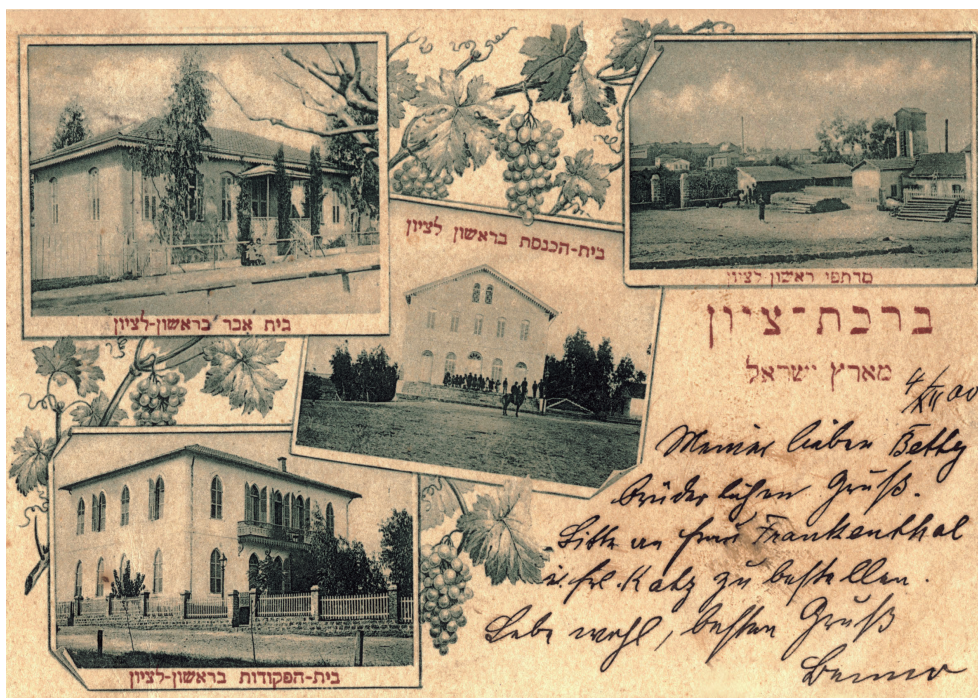 בית-הכנסת בראשון לציון
מרתפי ראשון לציון
בית אכר בראשון-לציון
ברכת-ציון
מארץ ישראל
4/XII 00
Meiner lieben Betty
brüderlichen Gruß.
Bitte an Frau Frankenthal
u. Frl. Katz zu bestellen.
Lebe wohl, besten Gruß
Benno
בית-הפקודות בראשון-לציון